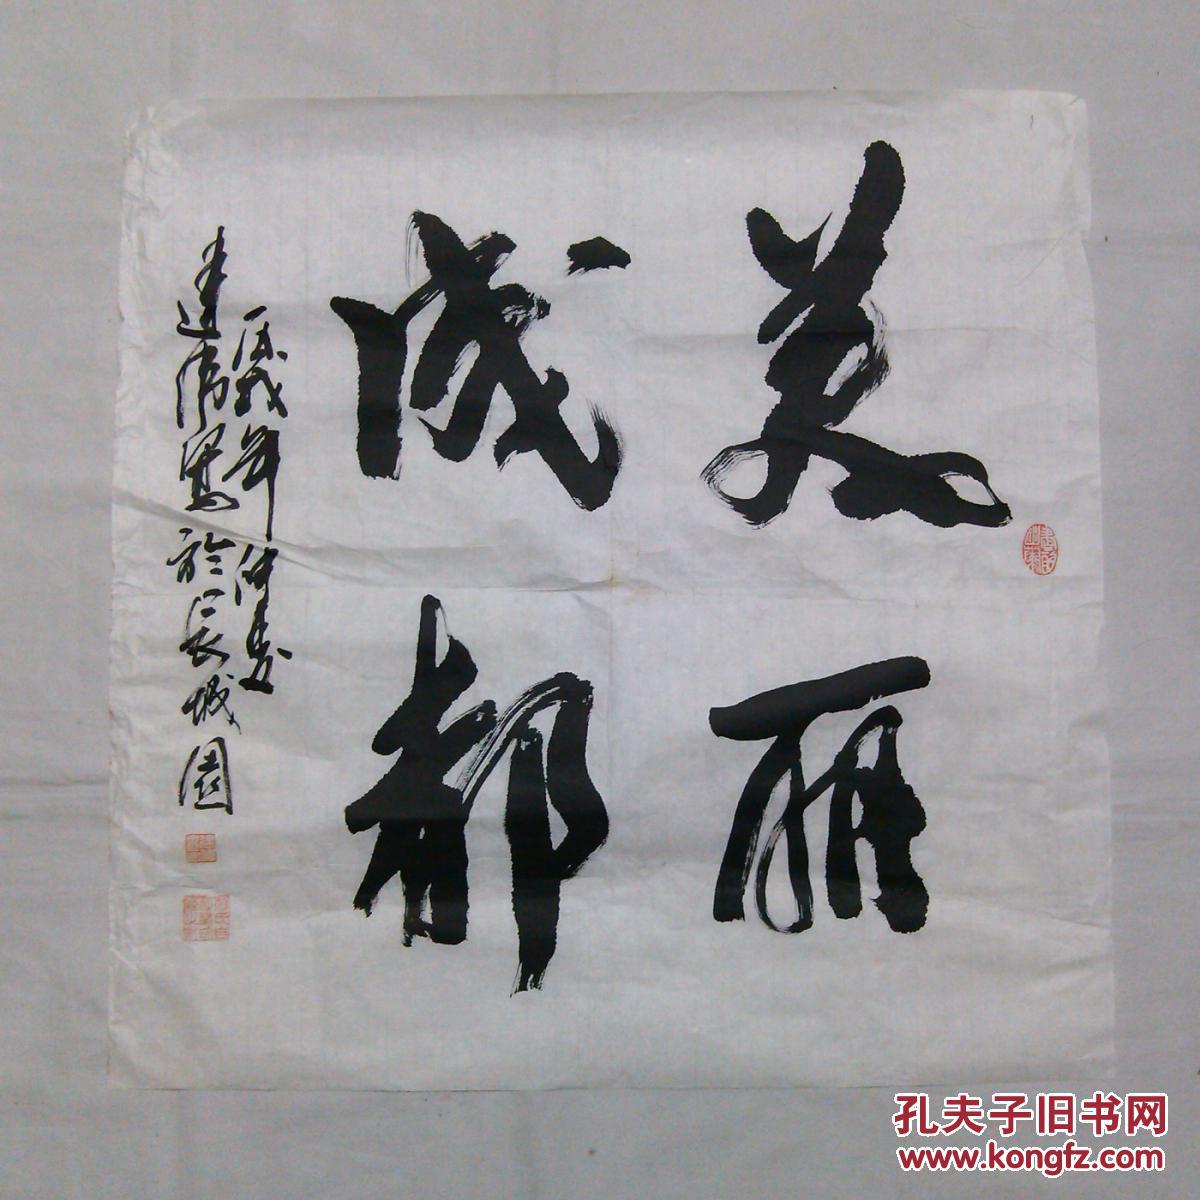 美丽
成都
戊戌年仲夏
建伟写於长城园
孔夫子旧书网
www.kongfz.com